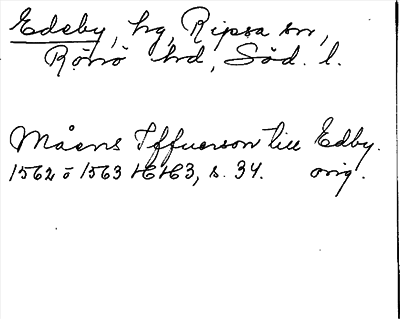 Edeby, hg, Ripsa sn,
Rönö hd, Söd. l.
Måens Iffuerson till Edby.
1562 o 1563 HH3, s. 34. orig.